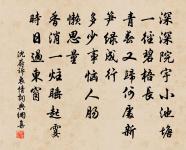 深深院宇小池塘
一徑碧梧長
青春又歸何處新
筍綠成行
多少事惱人腸
懶思量
香消一炷睡起霎
時日過東窗
沈蔚訴衷情詞